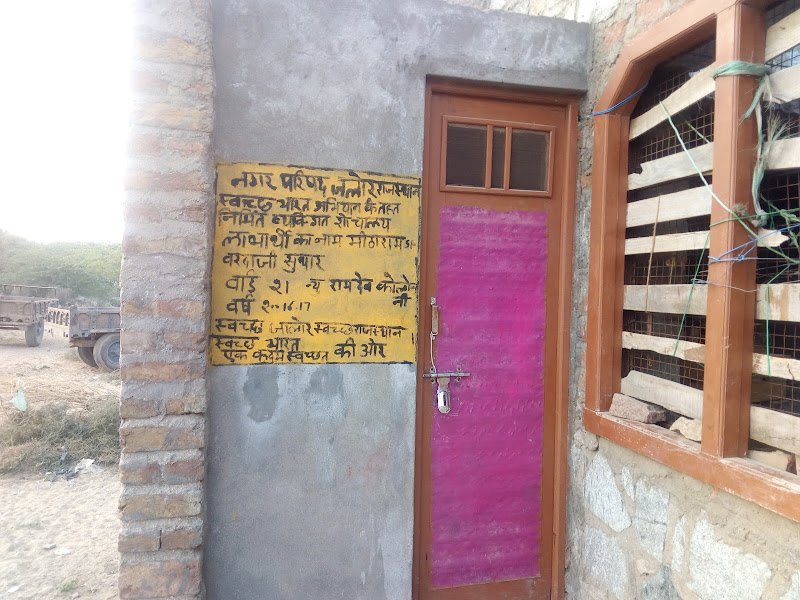 नगर परिषद जालोर राजस्थान
स्वच्छ भारत अभियान के तहत
निर्मित व्यक्तिगत शौचालय
लाभार्थी का नाम मीठाराम
वरदाजी सुथार
वार्ड 21 न्यु रामदेव कोलोनी
वर्ष 2016.17
स्वच्छ जालोर स्वच्छ राजस्थान
स्वच्छ भारत
एक कदम स्वच्छता की ओर